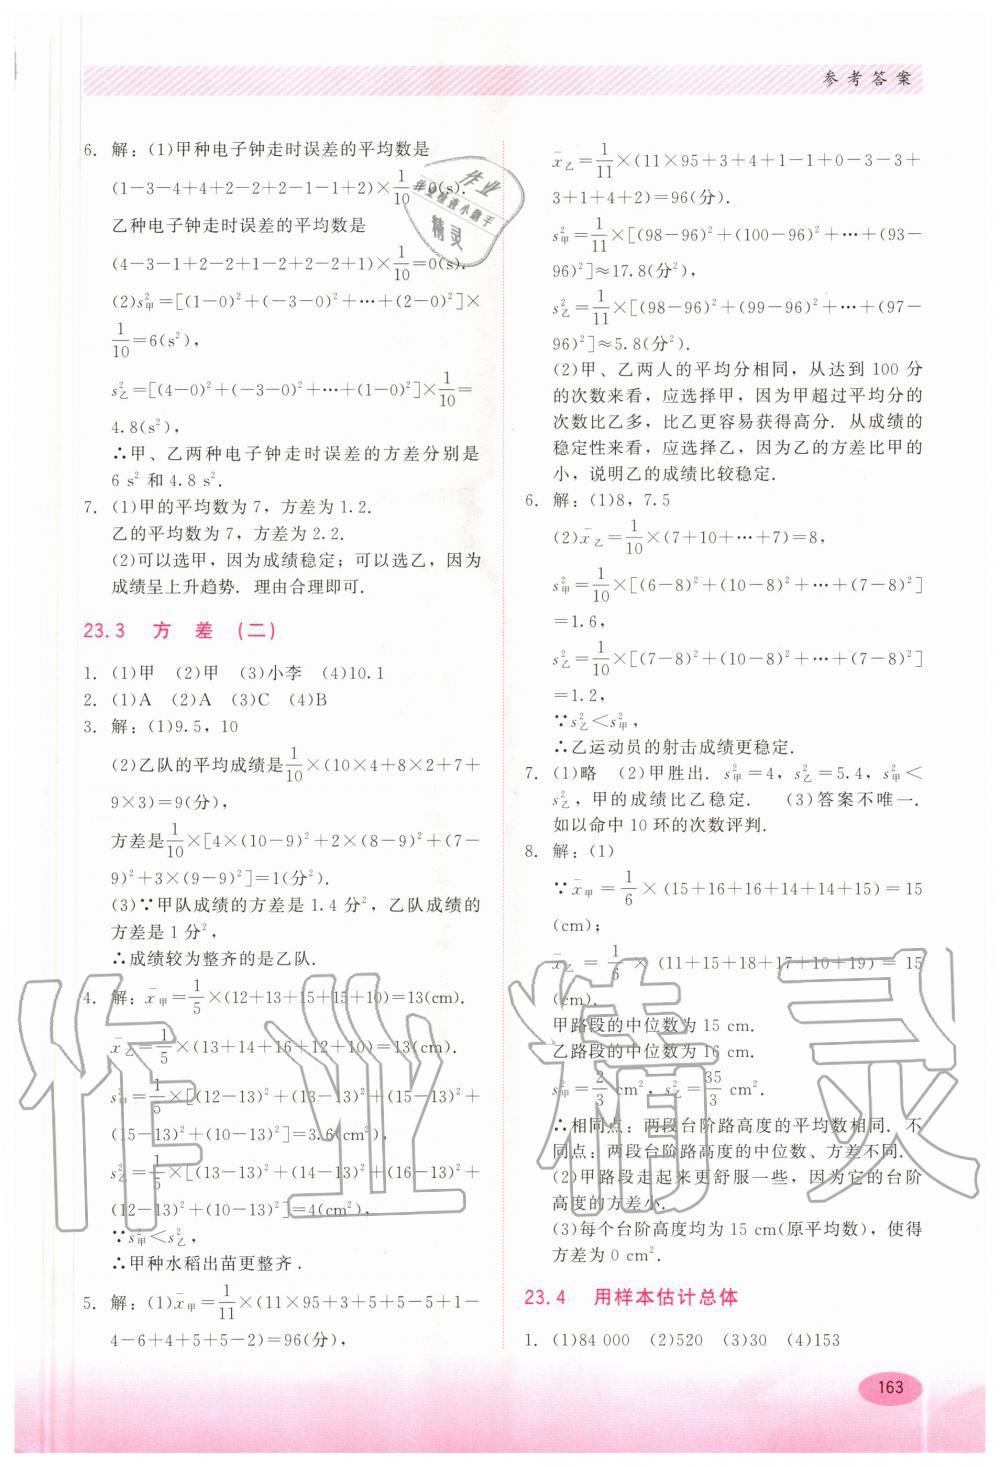 参考答案
6. 解：(1)甲种电子钟走时误差的平均数是
(1－3－4＋4＋2－2＋2－1－1＋2)×1/10＝0(s).
乙种电子钟走时误差的平均数是
(4－3－1＋2－2＋1－2＋2－2＋1)×1/10＝0(s).
(2)s²甲＝[(1－0)²＋(－3－0)²＋…＋(2－0)²]×
1/10＝6(s²)，
s²乙＝[(4－0)²＋(－3－0)²＋…＋(1－0)²]×1/10＝
4.8(s²)，
∴甲、乙两种电子钟走时误差的方差分别是
6 s² 和 4.8 s².
7. (1)甲的平均数为 7，方差为 1.2.
乙的平均数为 7，方差为 2.2.
(2)可以选甲，因为成绩稳定；可以选乙，因为
成绩呈上升趋势. 理由合理即可.
23.3 方 差 (二)
1. (1)甲 (2)甲 (3)小李 (4)10.1
2. (1)A (2)A (3)C (4)B
3. 解：(1)9.5，10
(2)乙队的平均成绩是1/10×(10×4＋8×2＋7＋
9×3)＝9(分)，
方差是1/10×[4×(10－9)²＋2×(8－9)²＋(7－
9)²＋3×(9－9)²]＝1(分²).
(3)∵甲队成绩的方差是 1.4 分²，乙队成绩的
方差是 1 分²，
∴成绩较为整齐的是乙队.
4. 解：x̄甲＝1/5×(12＋13＋15＋15＋10)＝13(cm).
x̄乙＝1/5×(13＋14＋16＋12＋10)＝13(cm).
s²甲＝1/5×[(12－13)²＋(13－13)²＋(15－13)²＋
(15－13)²＋(10－13)²]＝3.6(cm²)，
s²乙＝1/5×[(13－13)²＋(14－13)²＋(16－13)²＋
(12－13)²＋(10－13)²]＝4(cm²)，
∵s²甲＜s²乙，
∴甲种水稻出苗更整齐.
5. 解：(1)x̄甲＝1/11×(11×95＋3＋5＋5－6＋5＋1－
4－6＋4＋5＋5－2)＝96(分)，
x̄乙＝1/11×(11×95＋3＋4＋1－1＋0－3－3＋
3＋1＋4＋2)＝96(分).
s²甲＝1/11×[(98－96)²＋(100－96)²＋…＋(93－
96)²]≈17.8(分²)，
s²乙＝1/11×[(98－96)²＋(99－96)²＋…＋(97－
96)²]≈5.8(分²).
(2)甲、乙两人的平均分相同，从达到 100 分
的次数来看，应选择甲，因为甲超过平均分的
次数比乙多，比乙更容易获得高分. 从成绩的
稳定性来看，应选择乙，因为乙的方差比甲的
小，说明乙的成绩比较稳定.
6. 解：(1)8，7.5
(2)x̄乙＝1/10×(7＋10＋…＋7)＝8，
s²甲＝1/10×[(6－8)²＋(10－8)²＋…＋(7－8)²]
＝1.6，
s²乙＝1/10×[(7－8)²＋(10－8)²＋…＋(7－8)²]
＝1.2，
∵s²乙＜s²甲，
∴乙运动员的射击成绩更稳定.
7. (1)略 (2)甲胜出. s²甲＝4，s²乙＝5.4，s²甲＜
s²乙，甲的成绩比乙稳定. (3)答案不唯一.
如以命中 10 环的次数评判.
8. 解：(1)
∵x̄甲＝1/6×(15＋16＋16＋14＋14＋15)＝15
(cm)；
x̄乙＝1/6×(11＋15＋18＋17＋10＋19)＝15
(cm).
甲路段的中位数为 15 cm.
乙路段的中位数为 16 cm.
s²甲＝2/3 cm²，s²乙＝35/3 cm².
∴相同点：两段台阶路高度的平均数相同. 不
同点：两段台阶路高度的中位数、方差不同.
(2)甲路段走起来更舒服一些，因为它的台阶
高度的方差小.
(3)每个台阶高度均为 15 cm(原平均数)，使得
方差为 0 cm².
23.4 用样本估计总体
1. (1)84 000 (2)520 (3)30 (4)153
163
作业精灵